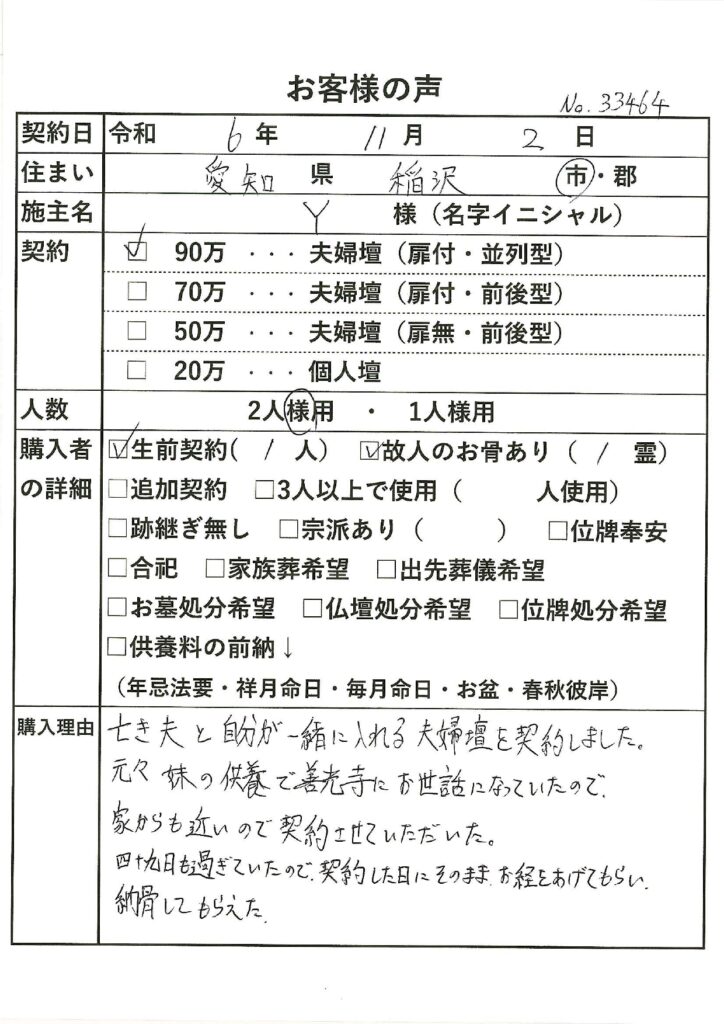 お客様の声
No. 33464
契約日 令和 6年 11月 2日
住まい 愛知県 稲沢 市・郡
施主名 Y 様（名字イニシャル）
契約 ☑ 90万 ・・・ 夫婦壇（扉付・並列型）
□ 70万 ・・・ 夫婦壇（扉付・前後型）
□ 50万 ・・・ 夫婦壇（扉無・前後型）
□ 20万 ・・・ 個人壇
人数 2人様用 ・ 1人様用
購入者の詳細 ☑生前契約( 1 人） ☑故人のお骨あり（ 1 霊）
□追加契約 □3人以上で使用（ 人使用）
□跡継ぎ無し □宗派あり（ ） □位牌奉安
□合祀 □家族葬希望 □出先葬儀希望
□お墓処分希望 □仏壇処分希望 □位牌処分希望
□供養料の前納↓
（年忌法要・祥月命日・毎月命日・お盆・春秋彼岸）
購入理由 亡き夫と自分が一緒に入れる夫婦壇を契約しました。
元々妹の供養で善光寺にお世話になっていたので、
家からも近いので契約させていただいた。
四十九日も過ぎていたので、契約した日にそのまま、お経をあげてもらい、
納骨してもらえた。